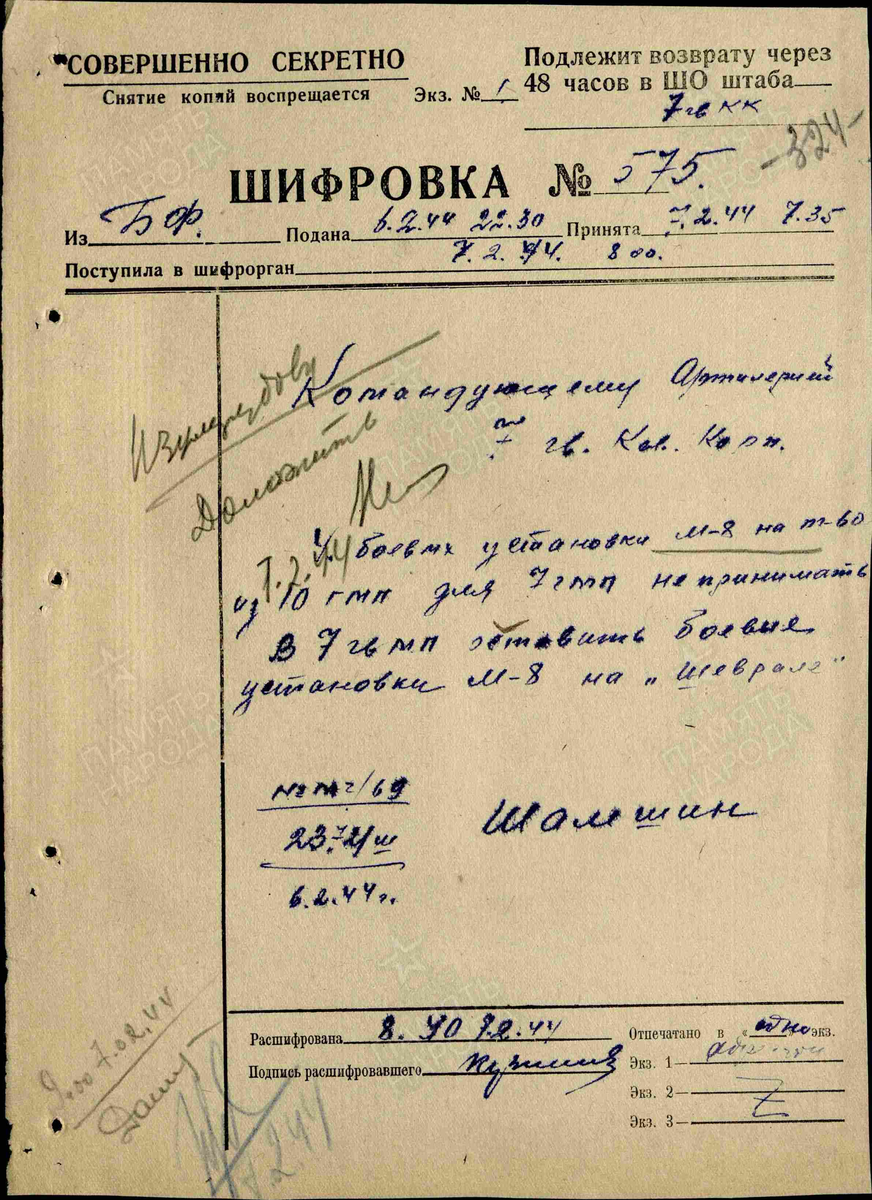 СОВЕРШЕННО СЕКРЕТНО
Снятие копий воспрещается
Экз. № 1
Подлежит возврату через
48 часов в ШО штаба
7 гв КК
-324-
ШИФРОВКА № 575.
Из БФ. Подана 6.2.44 22.30 Принята 7.2.44 7.35
Поступила в шифрорган 7.2.44. 8 00.
Командующему Артилерией
7 гв. Кав. Корп.
Доложить
7.2.44
боевых установки М-8 на т-во
из 10 гмп для 7 гмп не принимать
В 7 гв мп оставить боевые
установки М-8 на „Шевроле"
Шамшин
6.2.44 г.
Расшифрована 8.40 7.2.44
Подпись расшифровавшего
Отпечатано в „одно экз.
Экз. 1
Экз. 2
Экз. 3
9.00 7.02.44
7.2.44
ПАМЯТЬ
НАРОДА